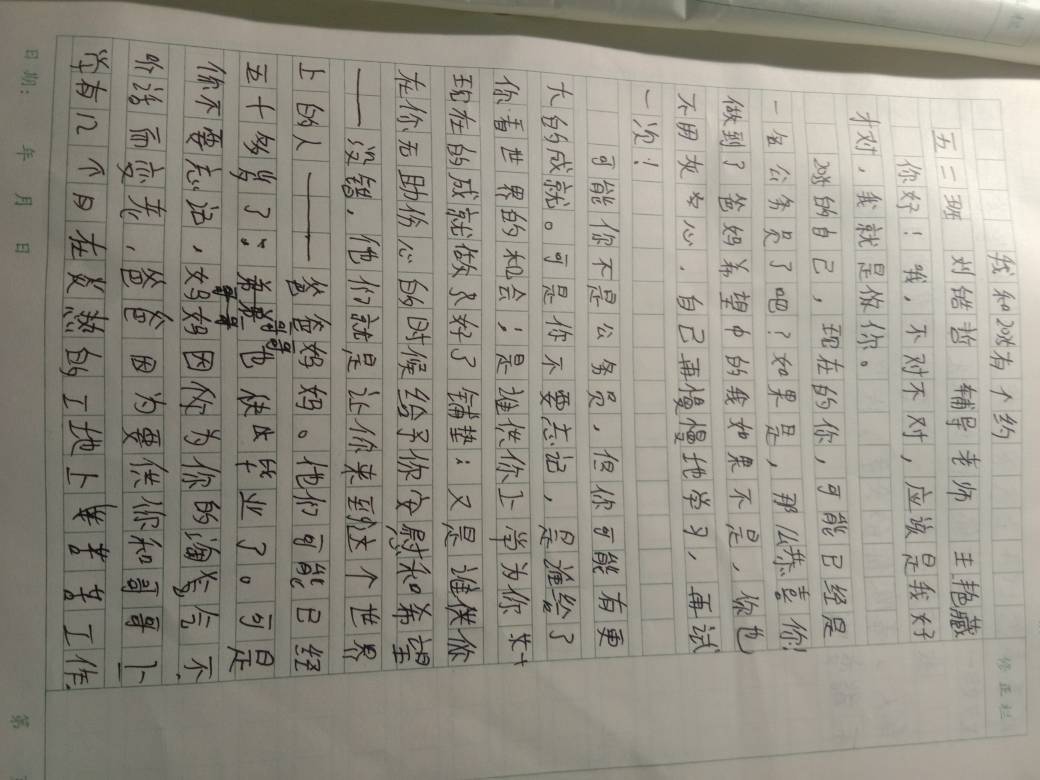 我和20岁有个约
五二班 刘锴哲 辅导老师 王艳藏
你好！哦，不对不对，应该是我好
才对，我就是你你。
20岁的自己，现在的你，可能已经是
一名公务员了吧？如果是，那么恭喜你！
做到了爸妈希望中的我如果不是，你也
不用灰心，自己再慢慢地学习，再试
一次！
可能你不是公务员，但你可能有更
大的成就。可是你不要忘记，是谁给了
你看世界的机会；是谁供你上学为你
现在的成就做良好了铺垫；又是谁供你
在你无助伤心的时候给予你安慰和希望
——没错，他们就是让你来到这个世界
上的人——爸爸妈妈。他们可能已经
五十多岁了；哥哥也快毕业了。可是
你不要忘记，妈妈因你为你的淘气不
听话而变老，爸爸因为要供你和哥哥上
学有几个日在炎热的工地上辛苦苦工作.
修正栏
日期： 年 月 日
第